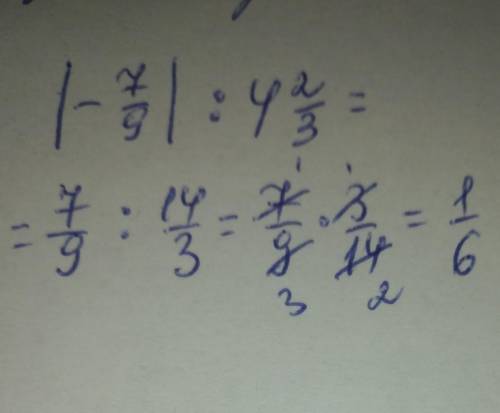 |-7/9| : 4 2/3 =
= 7/9 : 14/3 = 7/9 · 3/14 = 1/6
1 1
3 2